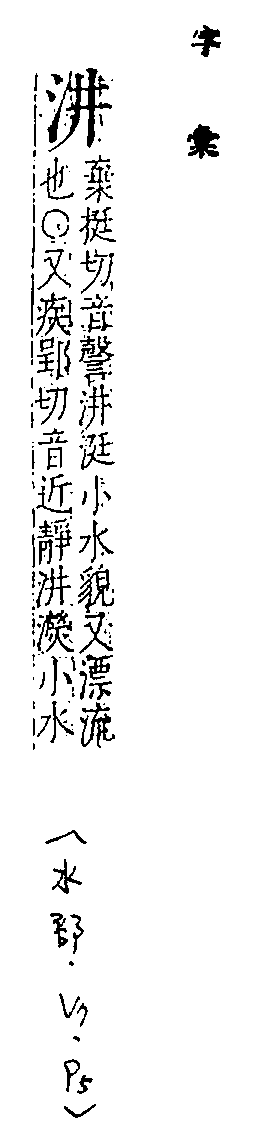 字彙
汫
棄挺切音謦汫涏小水貌又漂流
也○又疾郢切音近靜汫濙小水
(水部.V7.P5)